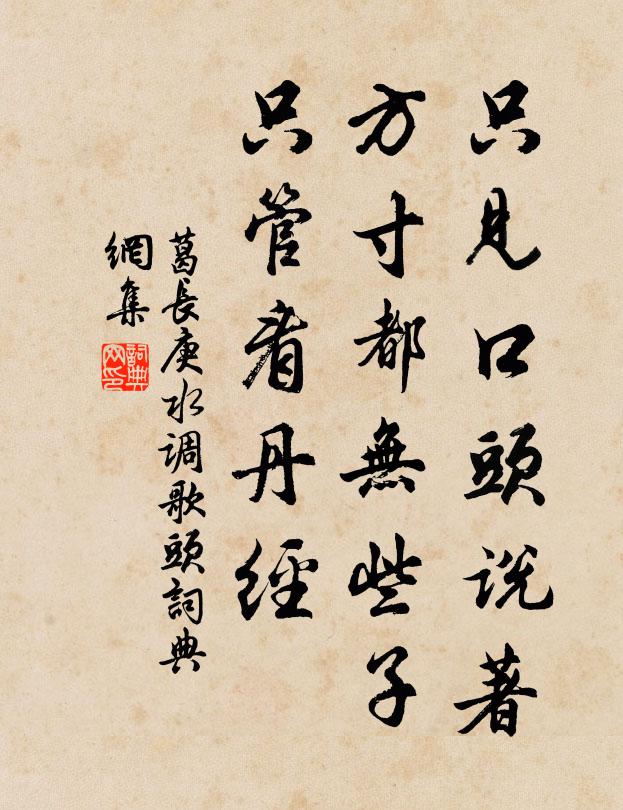 只見口頭説著
方寸都無些子
只管看丹經
葛長庚水调歌頭詞典
網集
詞典
网印